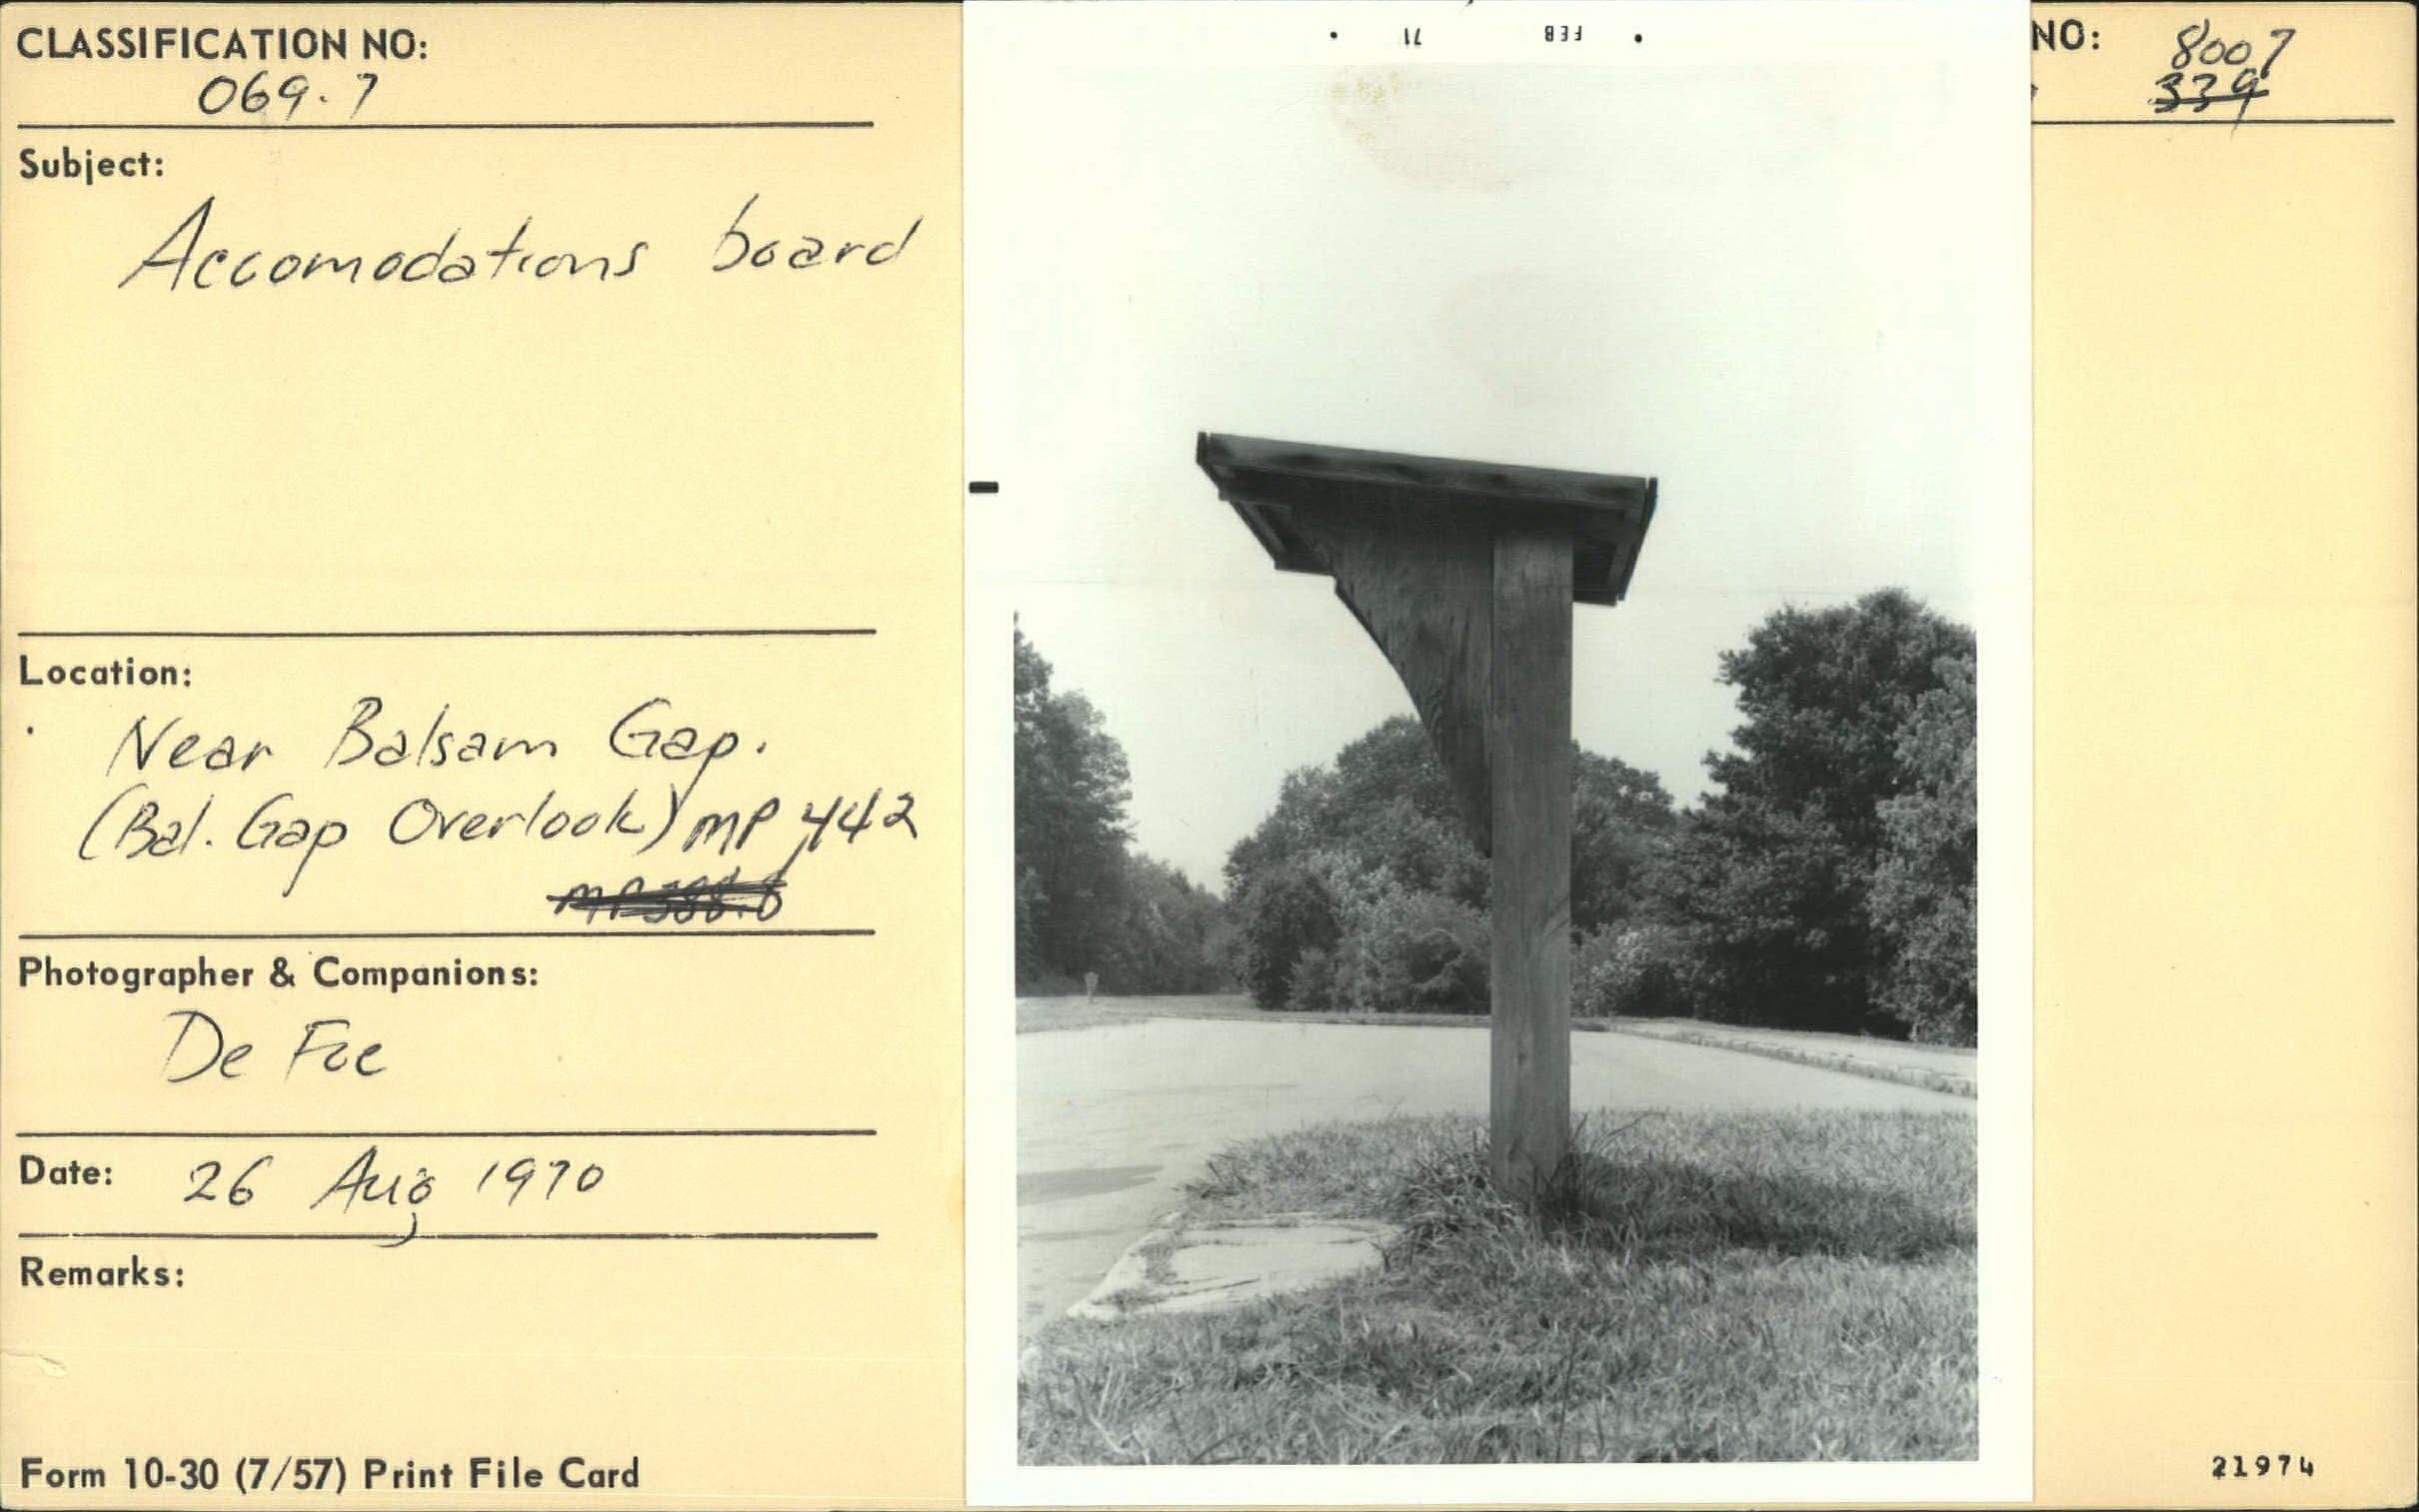 CLASSIFICATION NO:
069.7
Subject:
Accomodations board
Location:
Near Balsam Gap.
(Bal. Gap Overlook) MP 442
Photographer & Companions:
De Foe
Date: 26 Aug 1970
Remarks:
Form 10-30 (7/57) Print File Card
71 FEB
NO: 8007
339
21974